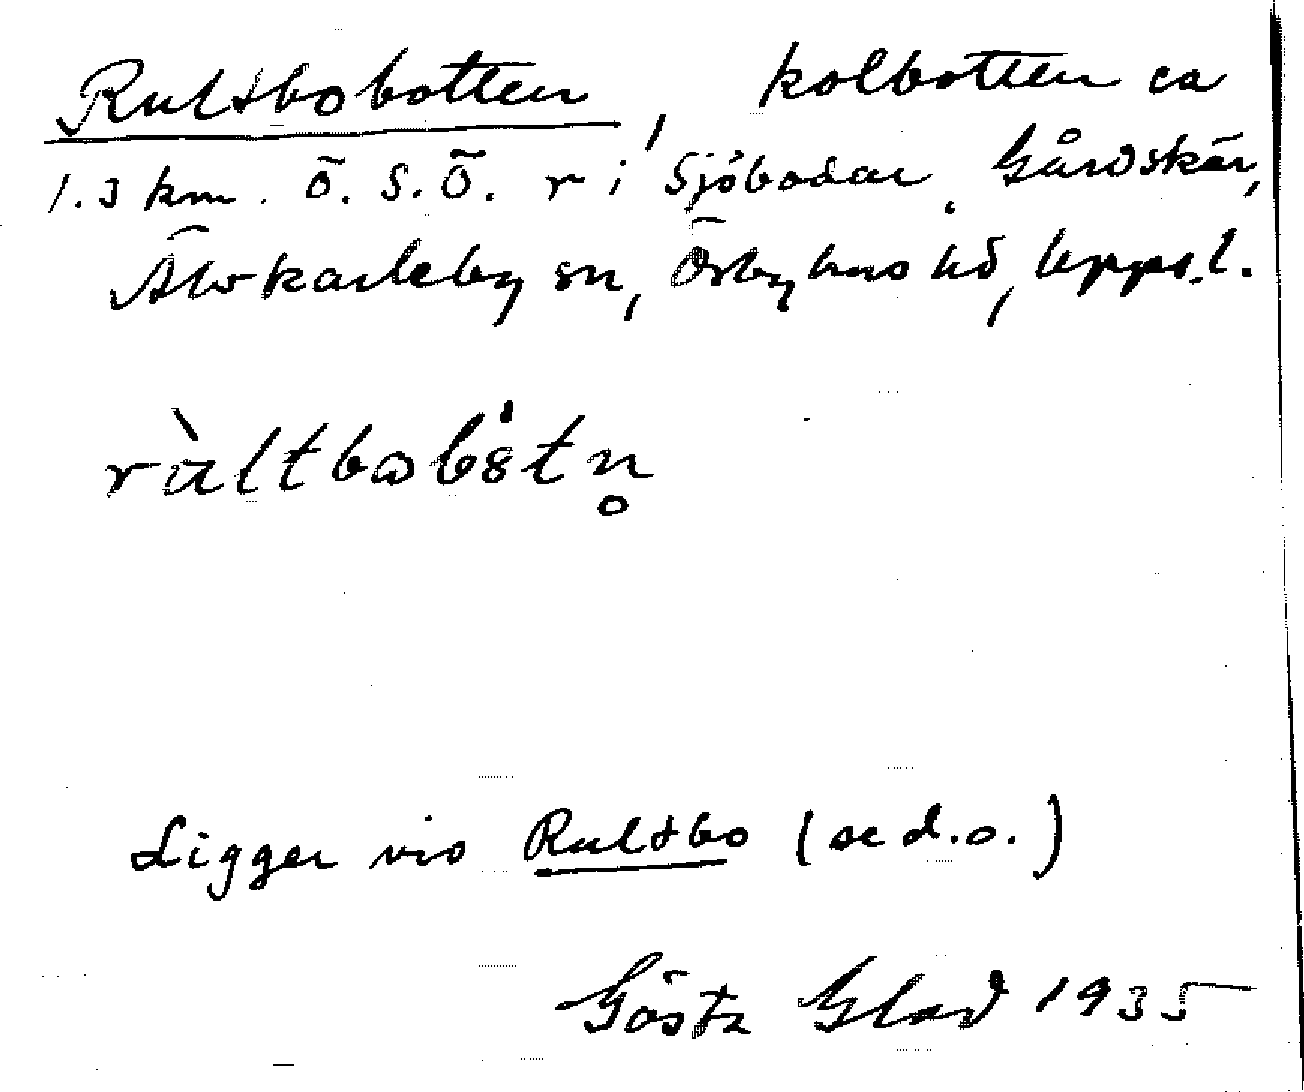 Rultbobotten, kolbotten ca
1.3 km. Ö. S. Ö. r i Sjöbodar. Gårdskär,
Älvkarleby sn, Örbyhus hd, Upps. l.
rùltbobȯtn̥
Ligger vid Rultbo (se d.o.)
Gösta Glad 1935